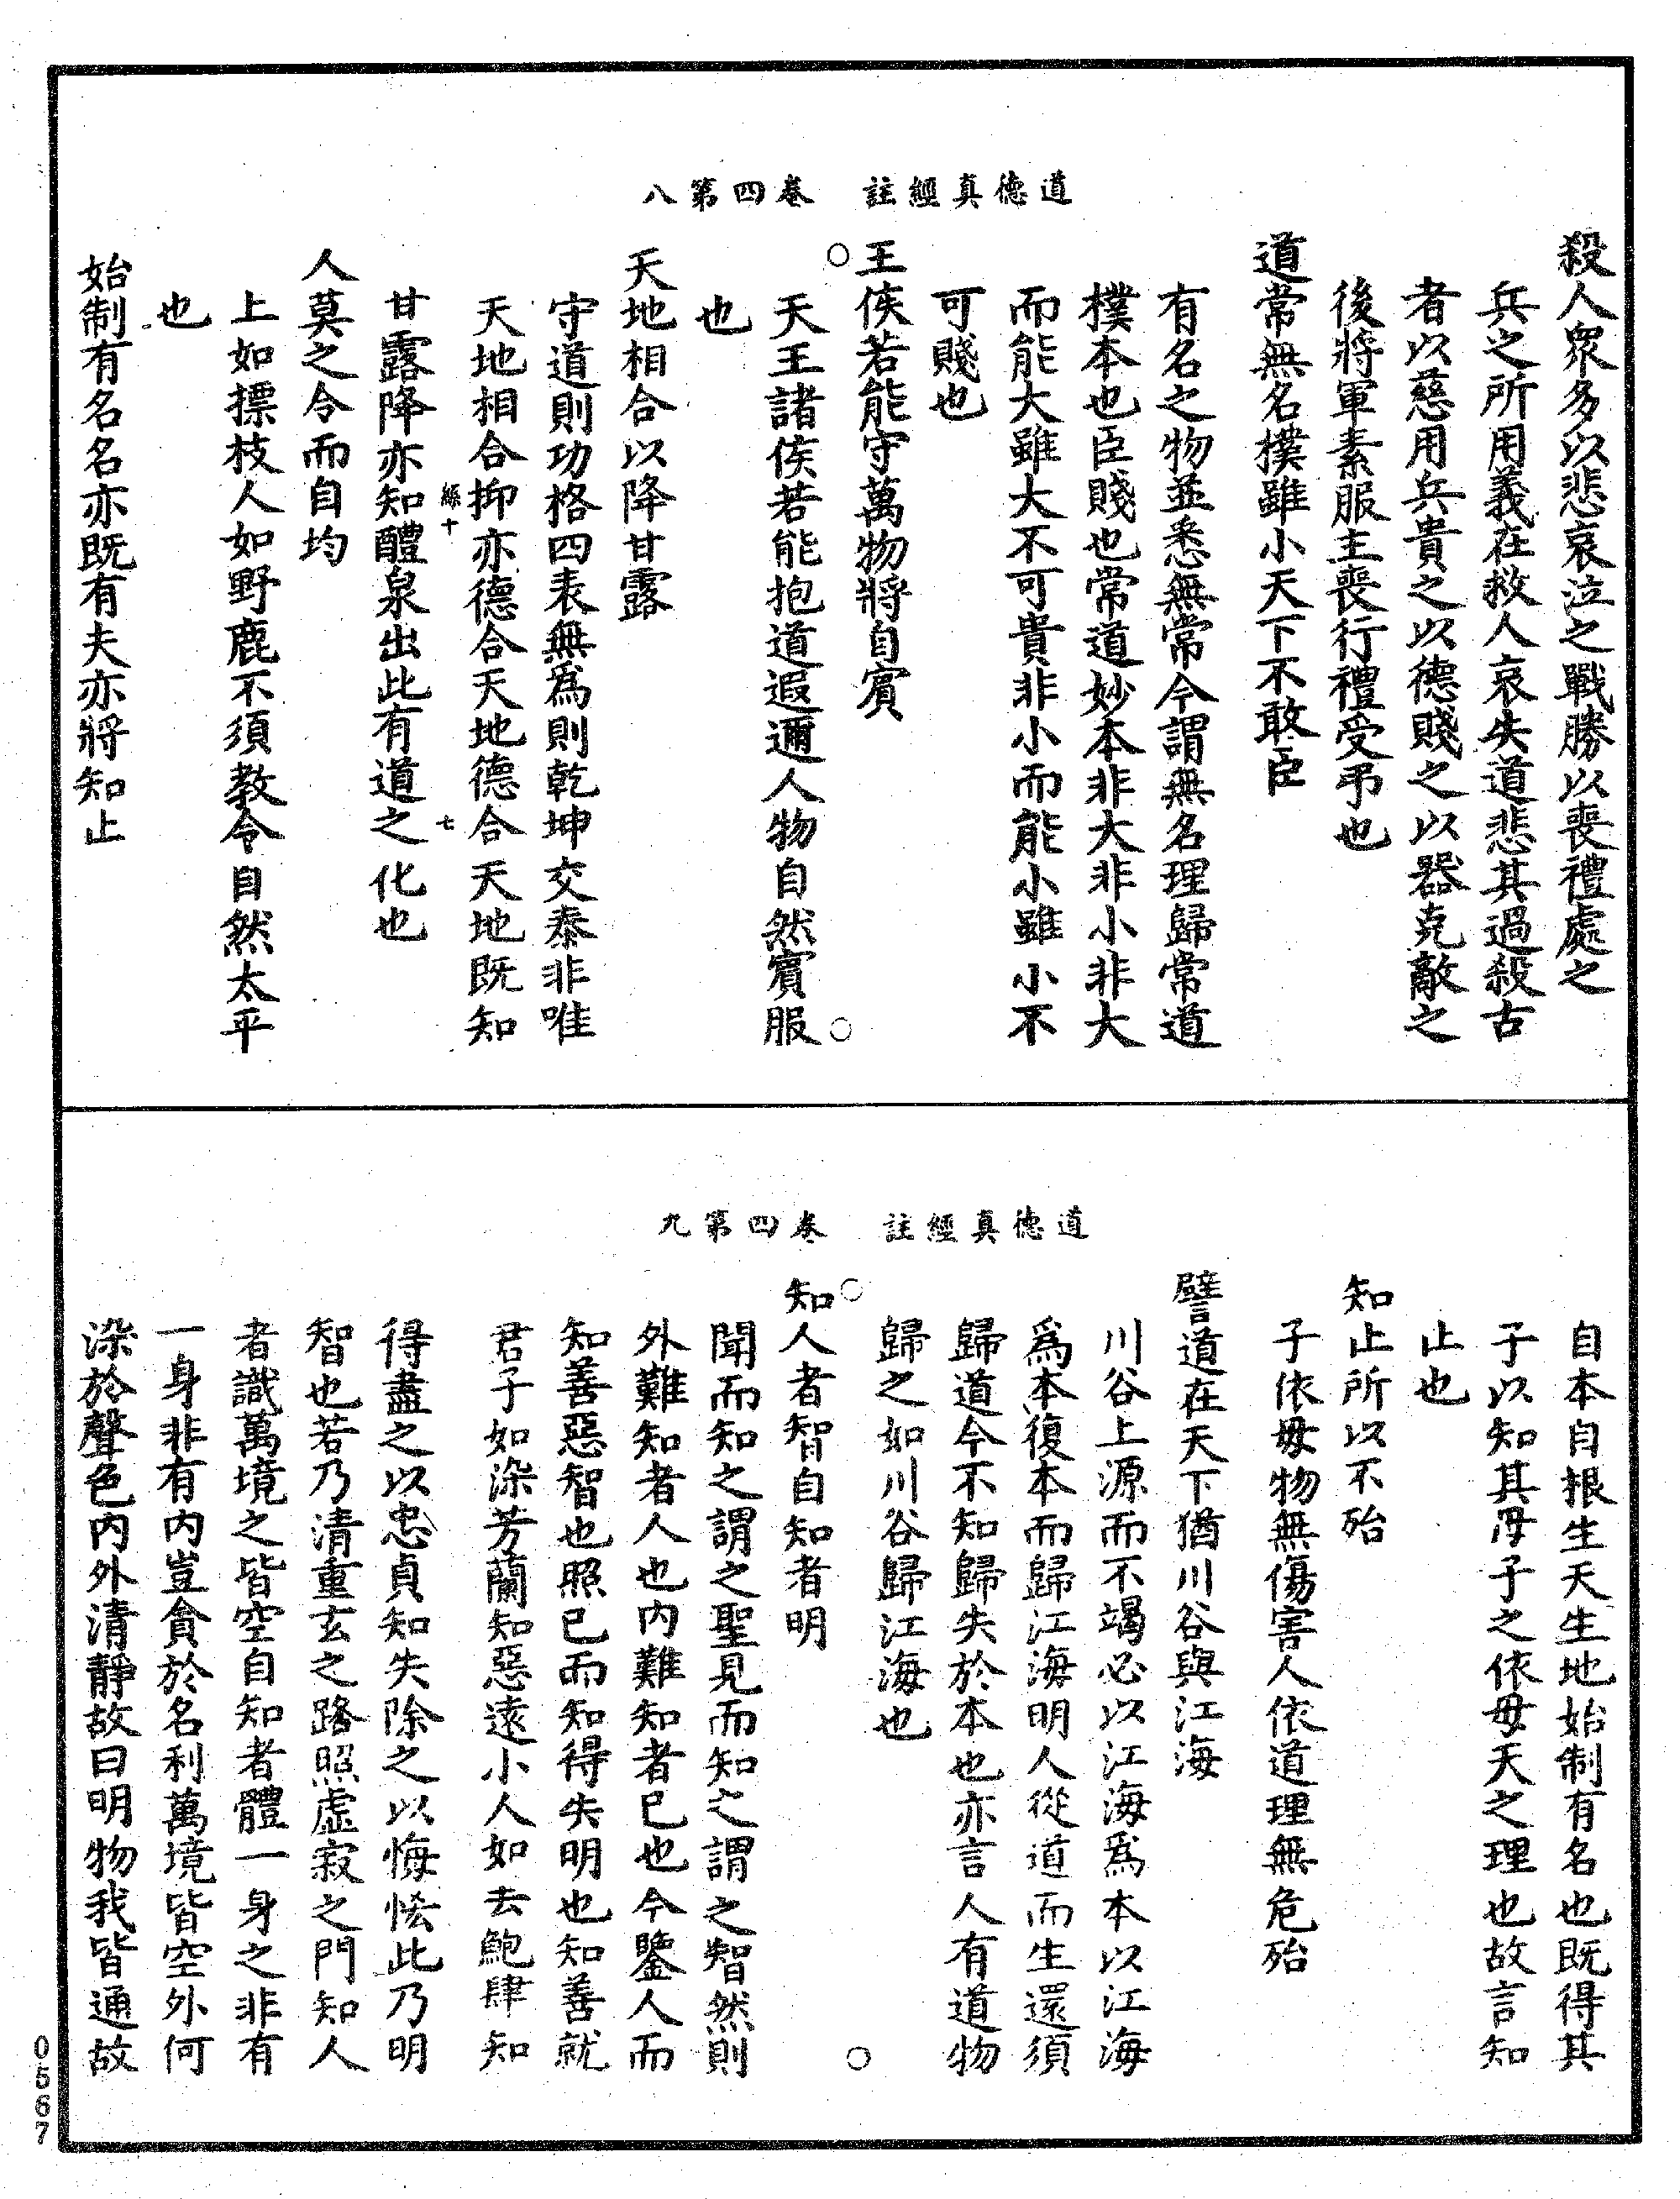 道德真經註　卷四第八
殺人衆多以悲哀泣之戰勝以喪禮處之
兵之所用義在救人哀失道悲其過殺古
者以慈用兵貴之以德賤之以器克敵之
後將軍素服主喪行禮受弔也
道常無名樸雖小天下不敢臣
有名之物並悉無常今謂無名理歸常道
樸本也臣賤也常道妙本非大非小非大
而能大雖大不可貴非小而能小雖小不
可賤也
王侯若能守萬物將自賓
天王諸侯若能抱道遐邇人物自然賓服
也
天地相合以降甘露
守道則功格四表無爲則乾坤交泰非唯
天地相合抑亦德合天地德合天地既知
絲十　七
甘露降亦知醴泉出此有道之化也
人莫之令而自均
上如摽枝人如野鹿不須教令自然太平
也
始制有名名亦既有夫亦將知止
道德真經註　卷四第九
自本自根生天生地始制有名也既得其
子以知其母子之依母天之理也故言知
止也
知止所以不殆
子依母物無傷害人依道理無危殆
譬道在天下猶川谷與江海
川谷上源而不竭必以江海爲本以江海
爲本復本而歸江海明人從道而生還須
歸道今不知歸失於本也亦言人有道物
歸之如川谷歸江海也
知人者智自知者明
聞而知之謂之聖見而知之謂之智然則
外難知者人也内難知者己也今鑒人而
知善惡智也照己而知得失明也知善就
君子如染芳蘭知惡遠小人如去鮑肆知
得盡之以忠貞知失除之以悔恡此乃明
智也若乃清重玄之路照虛寂之門知人
者識萬境之皆空自知者體一身之非有
一身非有内豈貪於名利萬境皆空外何
染於聲色内外清靜故曰明物我皆通故
0567